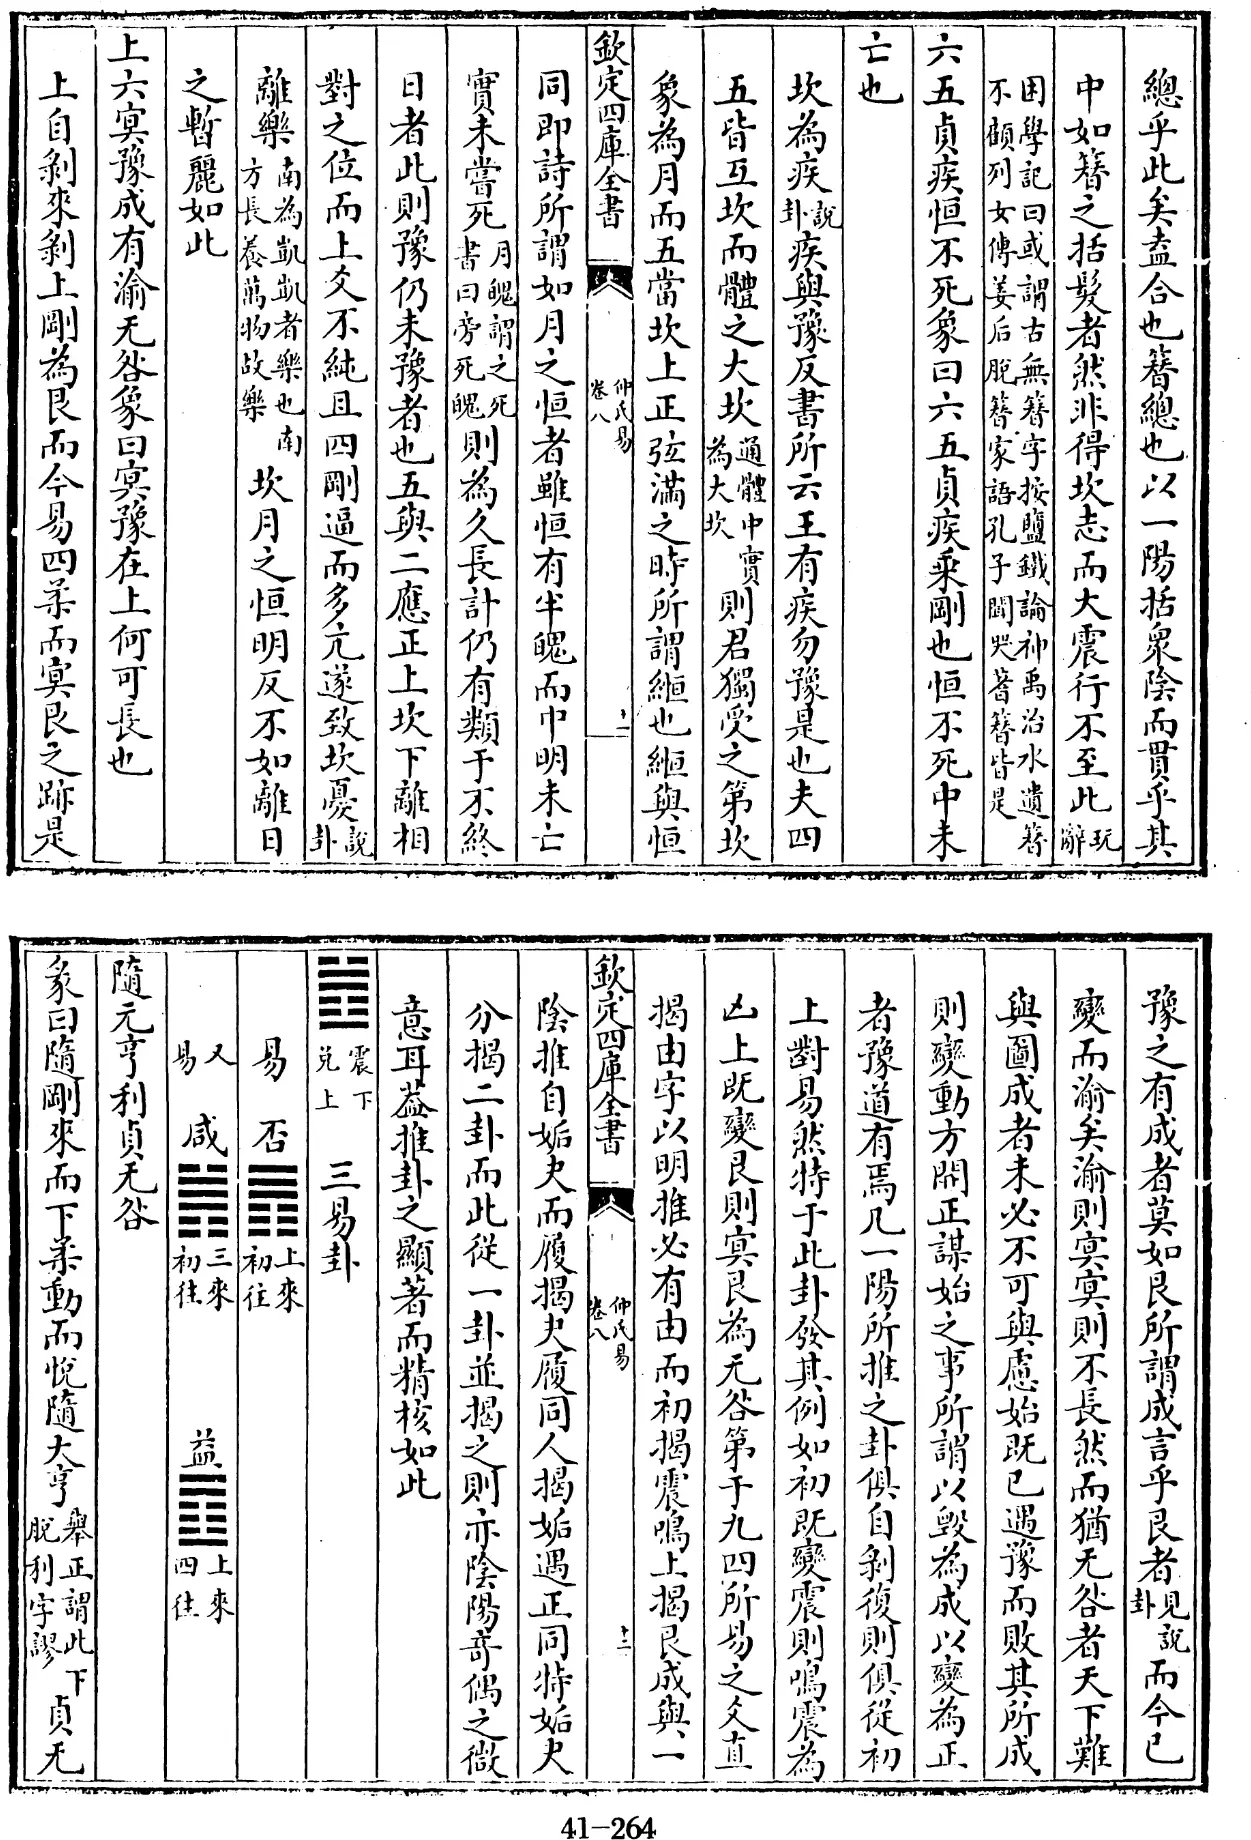 總乎此矣盍合也簮總也以一陽括衆陰而貫乎其
中如簮之括髮者然非得坎志而大震行不至此玩辭
困學記曰或謂古無簮字按鹽鐵論神禹治水遺簮
不顧列女傳姜后脫簮家語孔子聞哭蓍簮皆是
六五貞疾恒不死象曰六五貞疾乘剛也恒不死中未
亡也
坎為疾說卦疾與豫反書所云王有疾勿豫是也夫四
五皆互坎而體之大坎通體中實為大坎則君獨受之第坎
象為月而五當坎上正弦滿之時所謂緪也緪與恒
欽定四庫全書 仲氏易 卷八 十一
同即詩所謂如月之恒者雖恒有半魄而中明未亡
實未嘗死月魄謂之死書曰旁死魄則為久長計仍有類于不終
日者此則豫仍未豫者也五與二應正上坎下離相
對之位而上爻不純且四剛逼而多亢遂致坎憂說卦
離樂南為凱凱者樂也南方長養萬物故樂坎月之恒明反不如離日
之暫麗如此
上六㝠豫成有渝无咎象曰㝠豫在上何可長也
上自剝來剝上剛為艮而今易四柔而㝠艮之跡是
豫之有成者莫如艮所謂成言乎艮者見說卦而今已
變而渝矣渝則㝠㝠則不長然而猶无咎者天下難
與圖成者未必不可與慮始既已遇豫而敗其所成
則變動方開正謀始之事所謂以毀為成以變為正
者豫道有焉凡一陽所推之卦俱自剝復則俱從初
上對易然特于此卦發其例如初既變震則鳴震為
凶上既變艮則㝠艮為无咎第于九四所易之爻直
揭由字以明推必有由而初揭震鳴上揭艮成與一
欽定四庫全書 仲氏易 卷八 十二
陰推自姤夬而履揭夬履同人揭姤遇正同特姤夬
分揭二卦而此從一卦並揭之則亦陰陽奇偶之微
意耳益推卦之顯著而精核如此
䷐ 震下兌上 三易卦
易 否䷋上來初往
又易 咸䷞三來初徃 益䷩上來四徃
隨元亨利貞无咎
彖曰隨剛來而下柔動而悅隨大亨舉正謂此下脫利字謬貞无
41-264